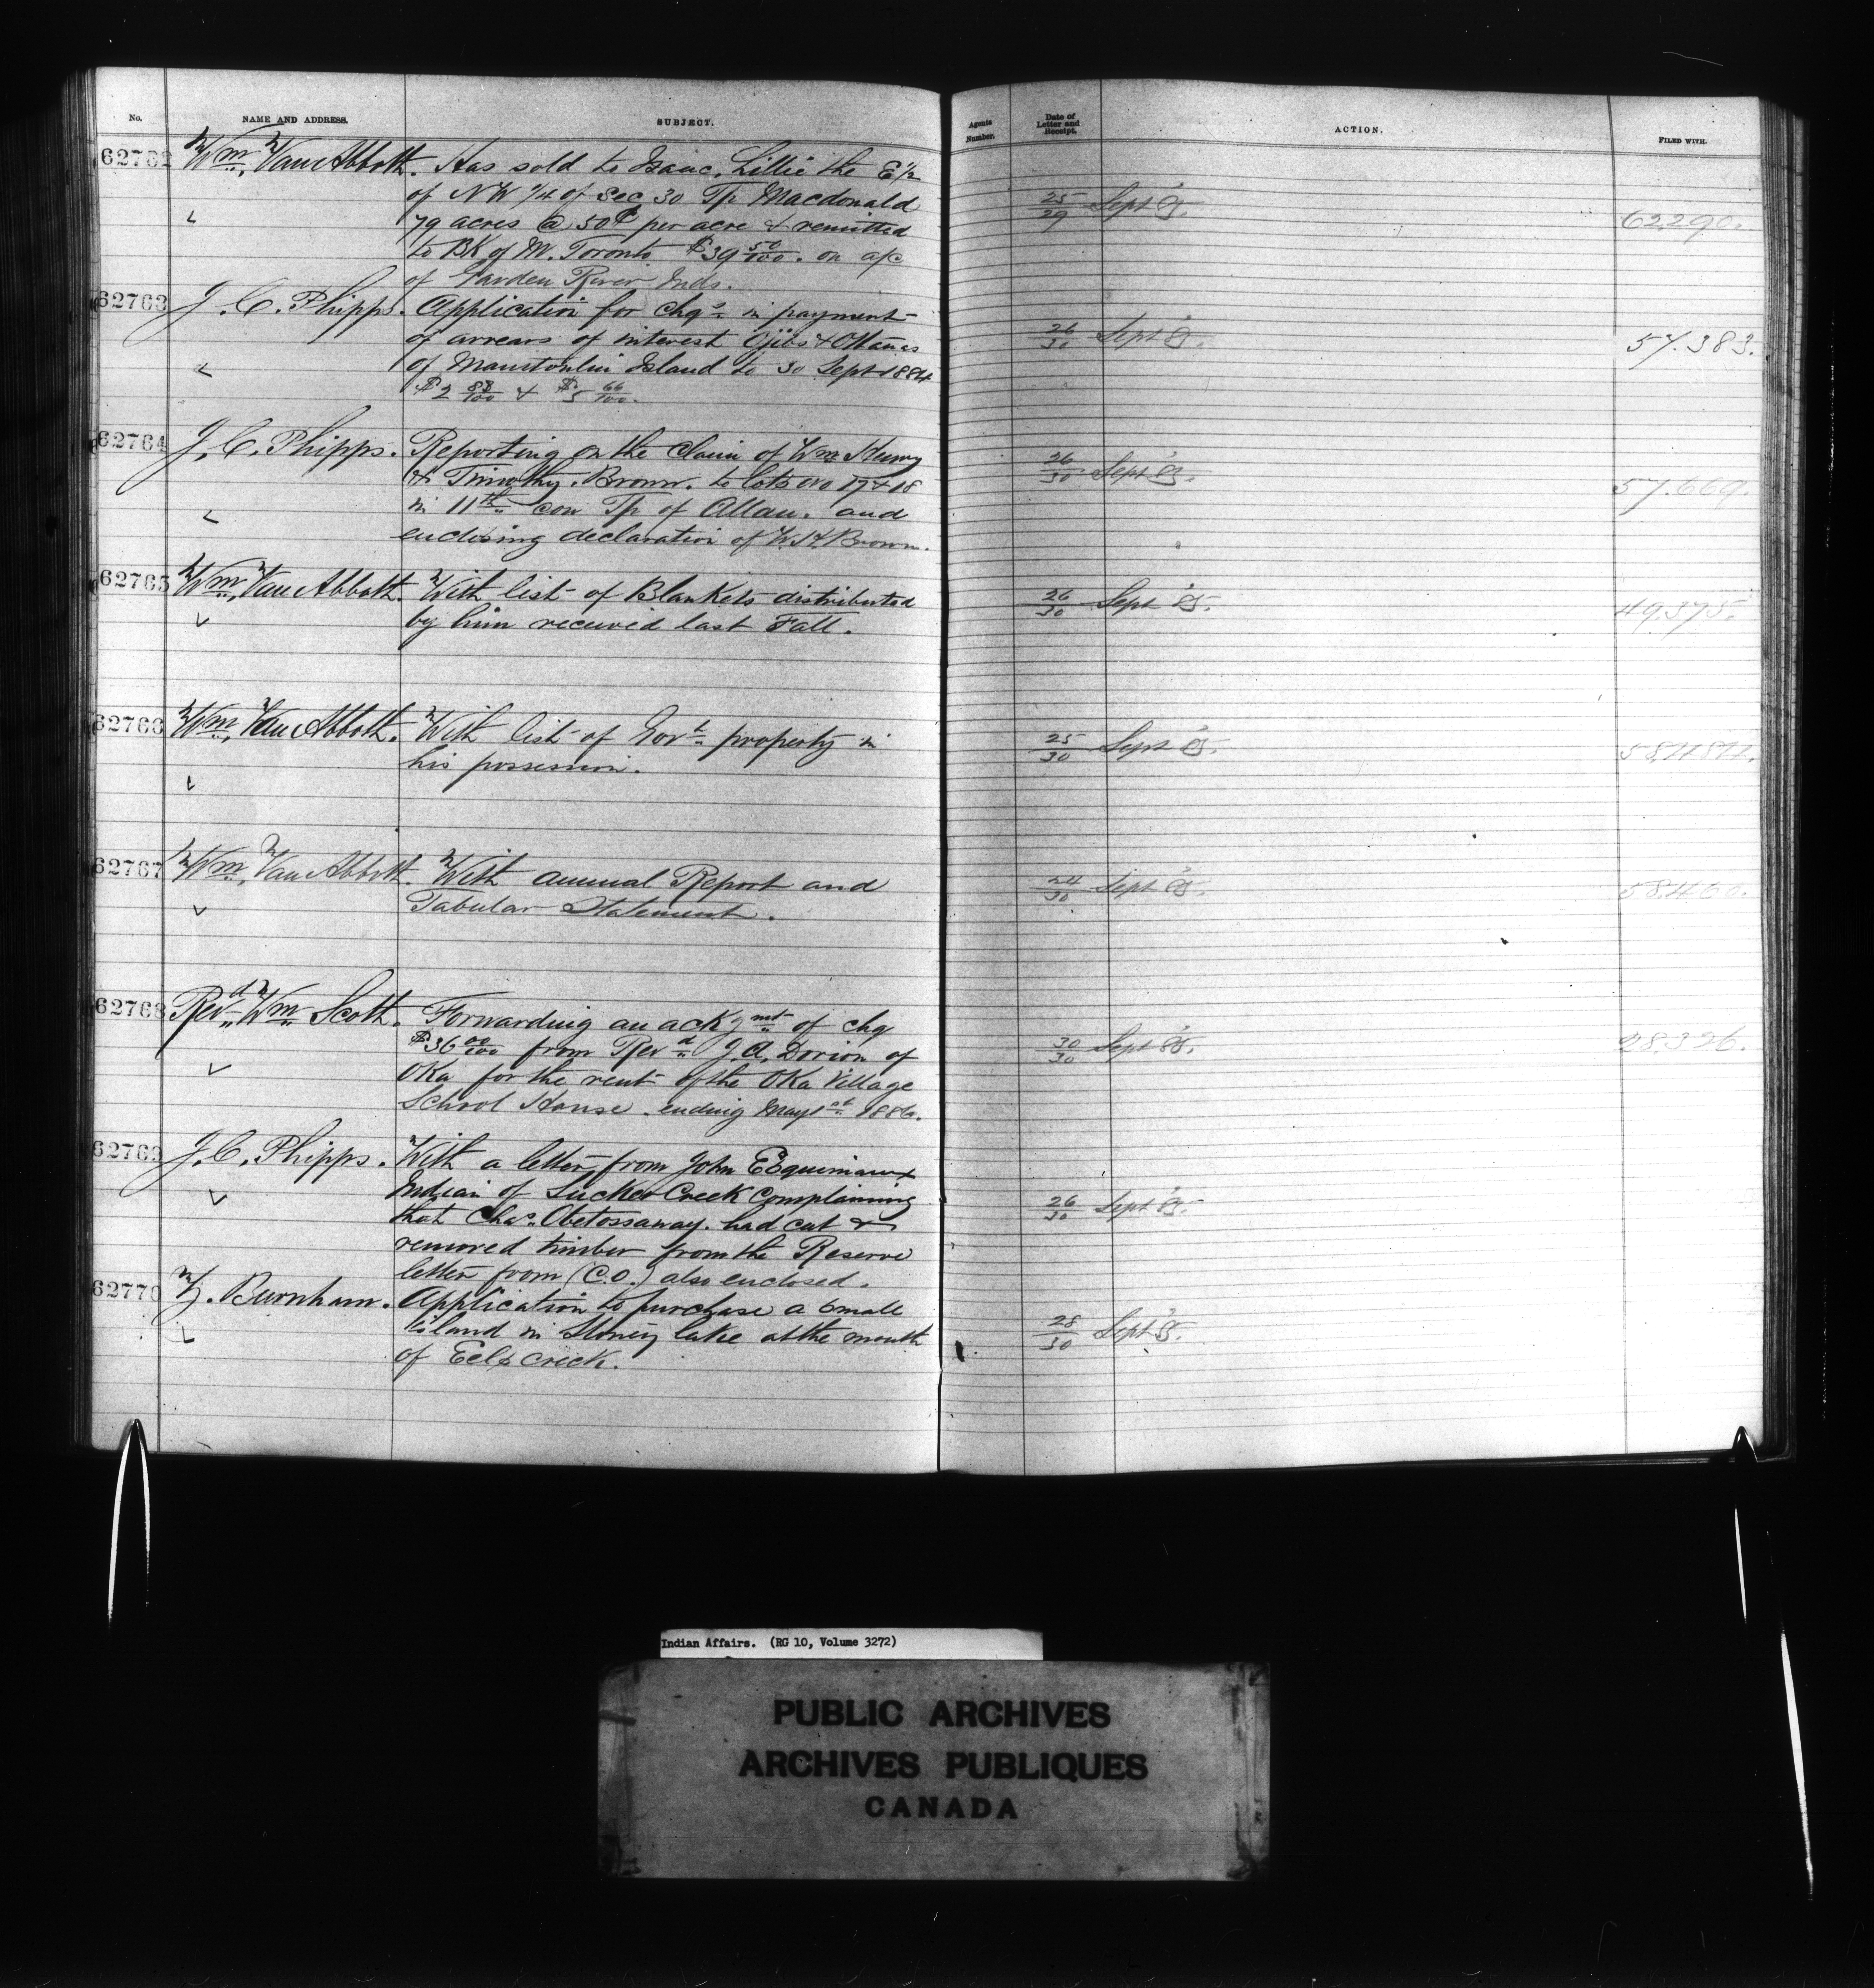 No. NAME AND ADDRESS. SUBJECT. Agents Number. Date of Letter and Receipt. ACTION. FILED WITH.
62762 Wm. Van Abbott. Has sold to Isaac Lillie the E 1/2
of NW 1/4 of Sec 30 Tp Macdonald 25/29 Sept '85.
79 acres @ 50¢ per acre & remitted 62290.
to BK of M. Toronto $39 50/100. on a/c
of Garden River Inds.
62763 J. C. Phipps. Application for chqs in payment
of arrears of interest Ojibs & Ottawas 26/30 Sept '85. 57.383.
of Manitoulin Island to 30 Sept 1884
$2 88/100 & $5 66/100.
62764 J. C. Phipps. Reporting on the claim of Wm Henry
& Timothy Brown. to lots No 17 & 18 26/30 Sept 85. 57.669.
in 11th con Tp of Allan. and
enclosing declaration of W. H. Brown.
62765 Wm. Van Abbott. With list of Blankets distributed 26/30 Sept 85. 49,375.
by him received last Fall.
62766 Wm. Van Abbott. With list of Govt property in 25/30 Sept 85.
his possession.
62767 Wm. Van Abbott. With annual Report and 24/30 Sept 85. 58,460.
Tabular Statement.
62768 Revd Wm Scott. Forwarding an ackgmt of chq
$36 00/100 from Revd J. A. Dorion of 30/30 Sept 85. 28.326.
Oka for the rent of the Oka Village
School House. ending May 1st 1886.
62769 J. C. Phipps. With a letter from John Esquimaux
Indian of Sucker Creek Complaining 26/30 Sept 85.
that Chas. Obetossaway. had cut &
removed timber from the Reserve
letter from (C.O.) also enclosed.
62770 Z. Burnham. Application to purchase a small
Island in Stoney lake at the mouth 28/30 Sept 85.
of Eels crick.
Indian Affairs. (RG 10, Volume 3272)
PUBLIC ARCHIVES
ARCHIVES PUBLIQUES
CANADA